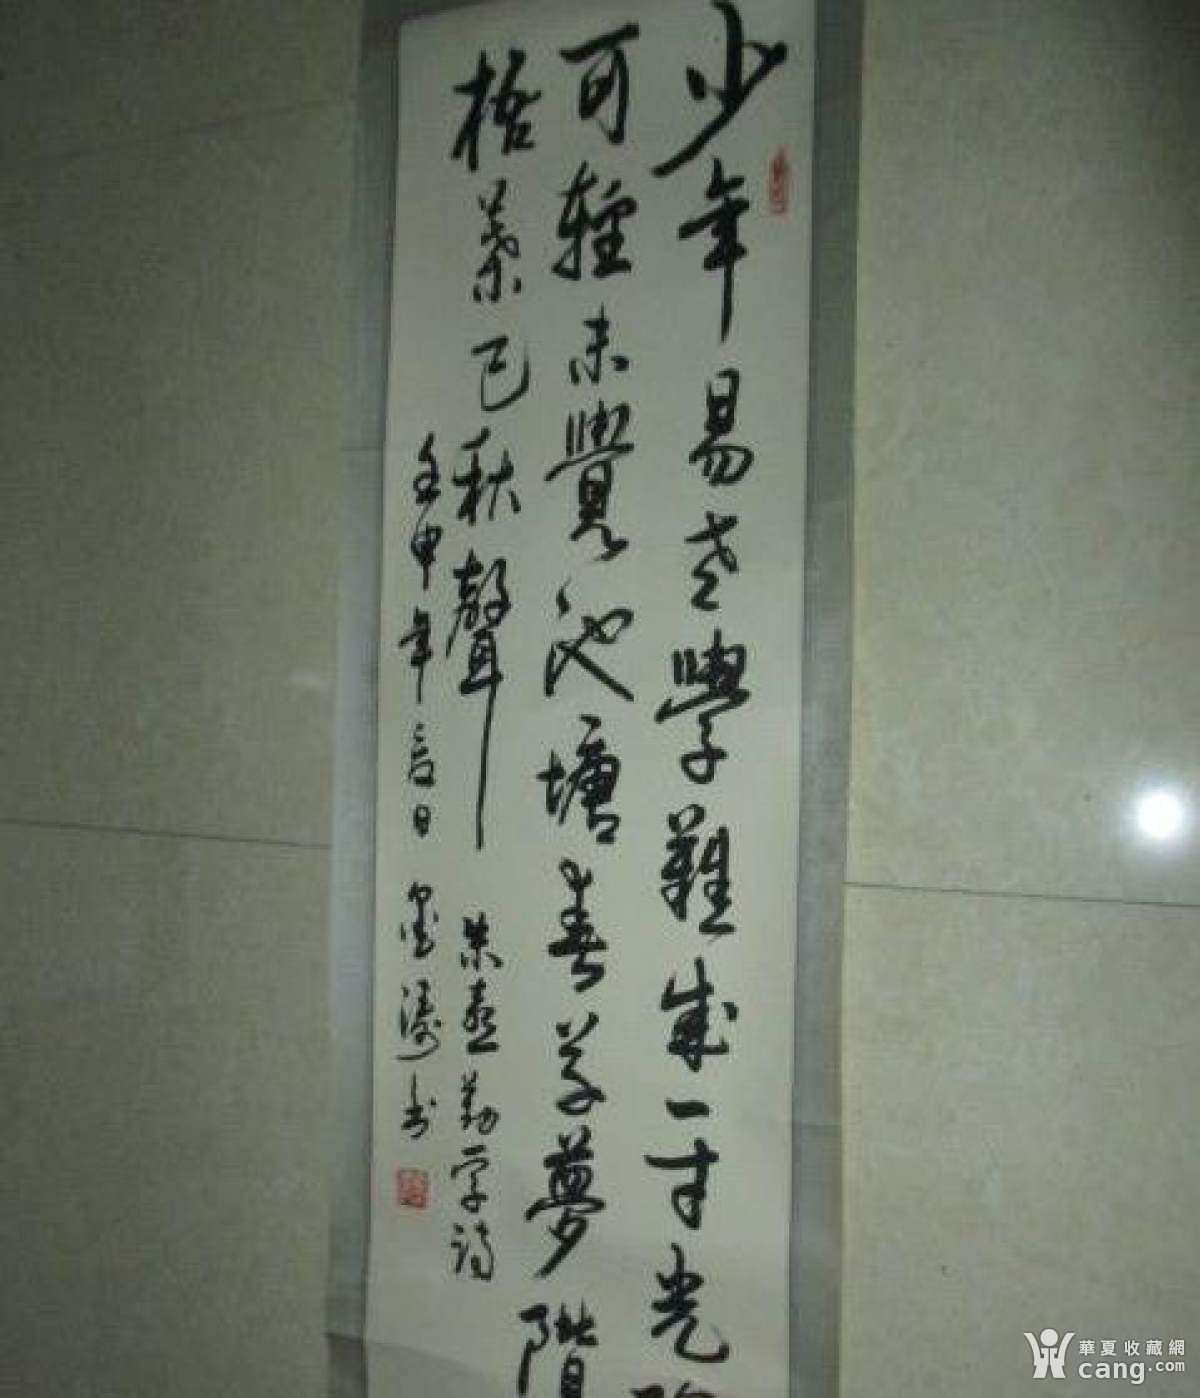 少年易老學難成一寸光陰
可輕未覺池塘春草夢階
梧葉已秋聲 朱熹勸學詩
壬申年夏日 墨濤书
華夏收藏網
cang.com